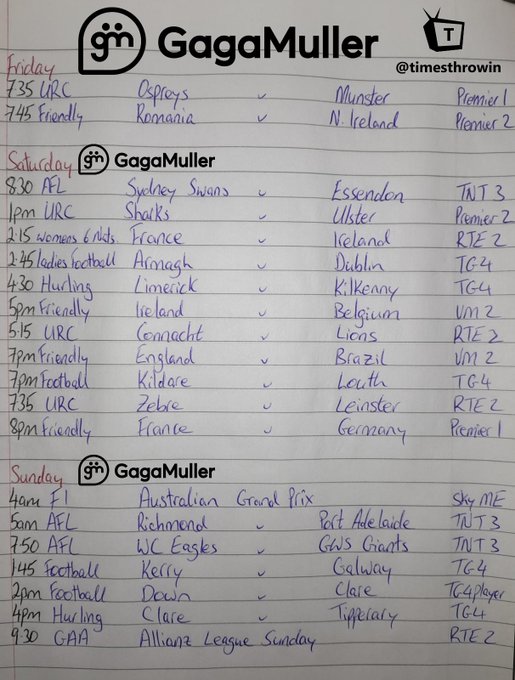 GagaMuller
T
@timesthrowin
Friday
7.35 URC Ospreys v Munster Premier 1
7.45 Friendly Romania v N. Ireland Premier 2
Saturday GagaMuller
8.30 AFL Sydney Swans v Essendon TNT 3
1pm URC Sharks v Ulster Premier 2
2.15 Womens 6 Nats France v Ireland RTE 2
2.45 ladies Football Armagh v Dublin TG4
4.30 Hurling Limerick v Kilkenny TG4
5pm Friendly Ireland v Belgium VM 2
5.15 URC Connacht v Lions RTE 2
7pm Friendly England v Brazil VM 2
7pm Football Kildare v Louth TG4
7.35 URC Zebre v Leinster RTE 2
8pm Friendly France v Germany Premier 1
Sunday GagaMuller
4am F1 Australian Grand Prix Sky ME
5am AFL Richmond v Port Adelaide TNT 3
7.50 AFL WC Eagles v GWS Giants TNT 3
1.45 Football Kerry v Galway TG4
2pm Football Down v Clare TG4player
4pm Hurling Clare v Tipperary TG4
9.30 GAA Allianz League Sunday RTE 2